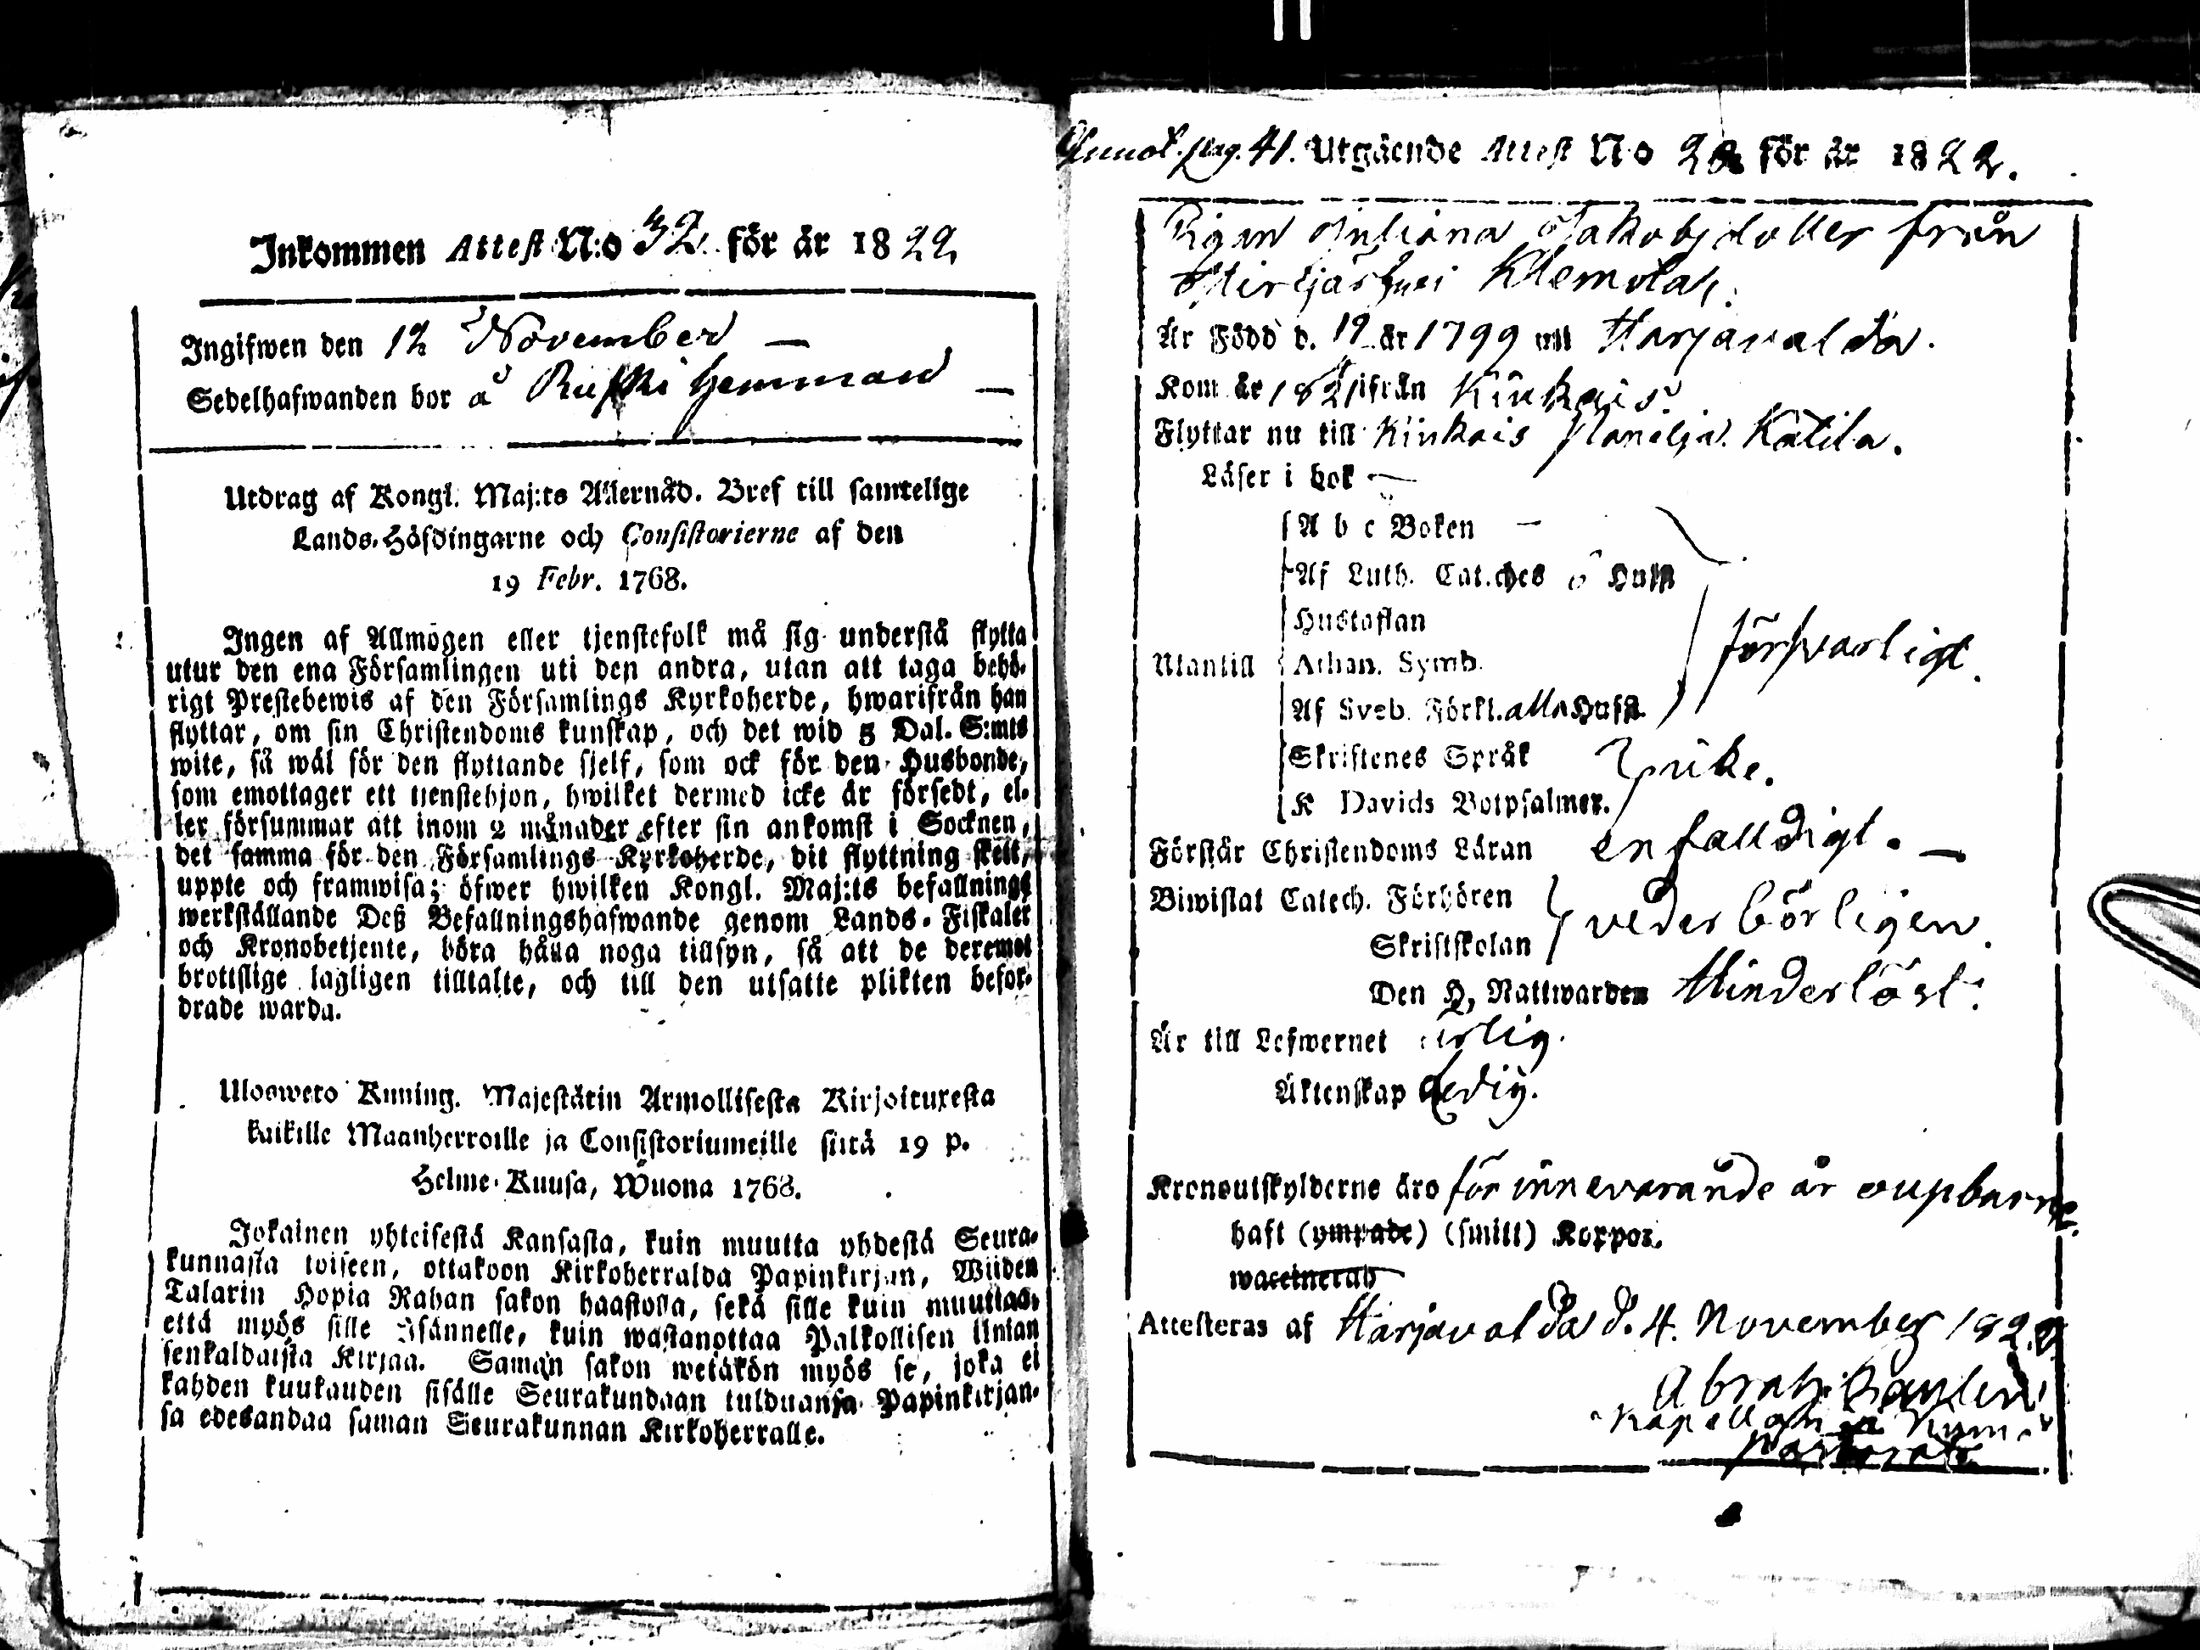 Inkommen Attest N:o 32. för år 1822,
Ingifwen den 12 November —
Sedelhafwanden bor å Ruski hemman —
Utdrag af Kongl. Maj:ts Allernåd. Bref till samtelige
Lands-Höfdingarne och Consistorierne af den
19 Febr. 1768.
Ingen af Allmogen eller tjenstefolk må sig understå flytta
utur den ena Församlingen uti den andra, utan att taga behö-
rigt Prestebewis af den Församlings Kyrkoherde, hwarifrån han
flyttar, om sin Christendoms kunskap, och det wid 5 Dal. S:mts
wite, så wäl för den flyttande sjelf, som ock för den Husbonde,
som emottager ett tienstehjon, hwilket dermed icke är försedt, el-
ler försummar att inom 2 månader efter sin ankomst i Socknen,
det samma för den Församlings Kyrkoherde, dit flyttning skett,
uppte och framwisa; öfwer hwilken Kongl. Maj:ts befallnings
werkställande Deß Befallningshafwande genom Lands-Fiskaler
och Kronobetjente, böra hålla noga tillsyn, så att de deremot
brottslige lagligen tilltalte, och till den utsatte plikten befor-
drade warda.
Ulosweto Kuning. Majestätin Armollisesta Kirjoituxesta
kaikille Maanherroille ja Consistoriumeille siitä 19 p.
Helme-Kuusa, Wuona 1768.
Jokainen yhteisestä Kansasta, kuin muutta yhdestä Seura-
kunnasta toiseen, ottakoon Kirkoherralda Papinkirjan, Wiiden
Talarin Hopia Rahan sakon haastolla, sekä sille kuin muuttaa,
että myös sille Isännelle, kuin wastanottaa Palkollisen ilman
senkaldaista Kirjaa. Saman sakon wetäkön myös se, joka ei
kahden kuukauden sisälle Seurakundaan tulduansa Papinkirjan-
sa edesandaa saman Seurakunnan Kirkoherralle.
pag. 41. Utgående Attest No 28 för år 1822.
Pigan Juliana Jakobsdotter från
Klemola,
Är Född d. 19 år 1799 uti Harjavalda.
Kom år 1821 ifrån Kiukais
Flyttar nu till Kiukais Katila.
Läser i bok —
A b c Boken —
Af Luth. Cat.ches 6 Hufst
Hustaflan
Utantill Athan. Symb.
Af Sveb. Förkl. alla Hufst.
försvarligt.
Skriftenes Språk
K Davids Botpsalmer.
Förstår Christendoms Läran enfalldigt. —
Biwistat Catech. Förhören
Skriftskolan
vederbörligen.
Den H. Nattwarden Hinderlöst.
Är till Lefwernet ärlig.
Äktenskap Ledig.
Kronoutskylderne äro för innevarande år oupburne.
haft (ympade) (smitt) Koppor.
waccinerad
Attesteras af Harjavalda d. 4. November 1822.
Abrah.
Kapellan